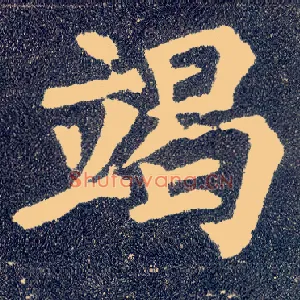 竭
Shufawang.cn